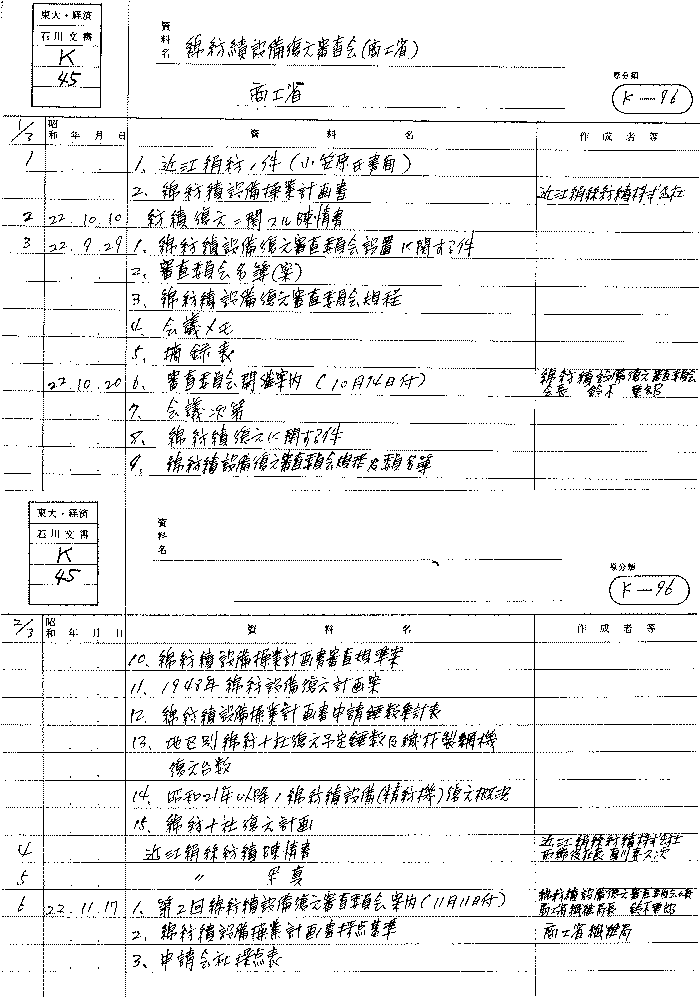 東大・経済
石川文書
K
45
資料名 綿紡績設備復元審査会(商工省)
商工省
原分類
K—96
1/3 昭和 年 月 日 資料名 作成者等
1 1、近江絹紡ノ件(小笠原氏書翰)
2、綿紡績設備操業計画書 近江絹絲紡績株式会社
2 22.10.10 紡績復元ニ関スル陳情書
3 22.9.29 1、綿紡績設備復元審査委員会設置に関する件
2、審査委員会名簿(案)
3、綿紡績設備復元審査委員会規程
4、会議メモ
5、摘録表
22.10.20 6、審査委員会開催案内(10月14日付) 綿紡績設備復元審査委員会
会長 鈴木
7、会議次第
8、綿紡績復元に関する件
9、綿紡績設備復元審査委員会規程及委員名簿
東大・経済
石川文書
K
45
資料名
原分類
K—96
2/3 昭和 年 月 日 資料名 作成者等
10、綿紡績設備操業計画書審査規準案
11、1948年綿紡設備復元計画案
12、綿紡績設備操業計画書申請錘数集計表
13、地区別綿紡十社復元予定錘数及織布製綱機
復元台数
14、昭和21年以降ノ綿紡績設備(精紡機)復元概況
15、綿紡十社復元計画
4 近江絹絲紡績陳情書 近江絹絲紡績株式会社
取締役社長 夏川嘉久次
5 〃 写真
6 22.11.17 1、第2回綿紡績設備復元審査委員会案内(11月11日付) 綿紡績設備復元審査委員会会長
商工省繊維局長 鈴木重郎
2、綿紡績設備操業計画書採点基準 商工省繊維局
3、申請会社採点表